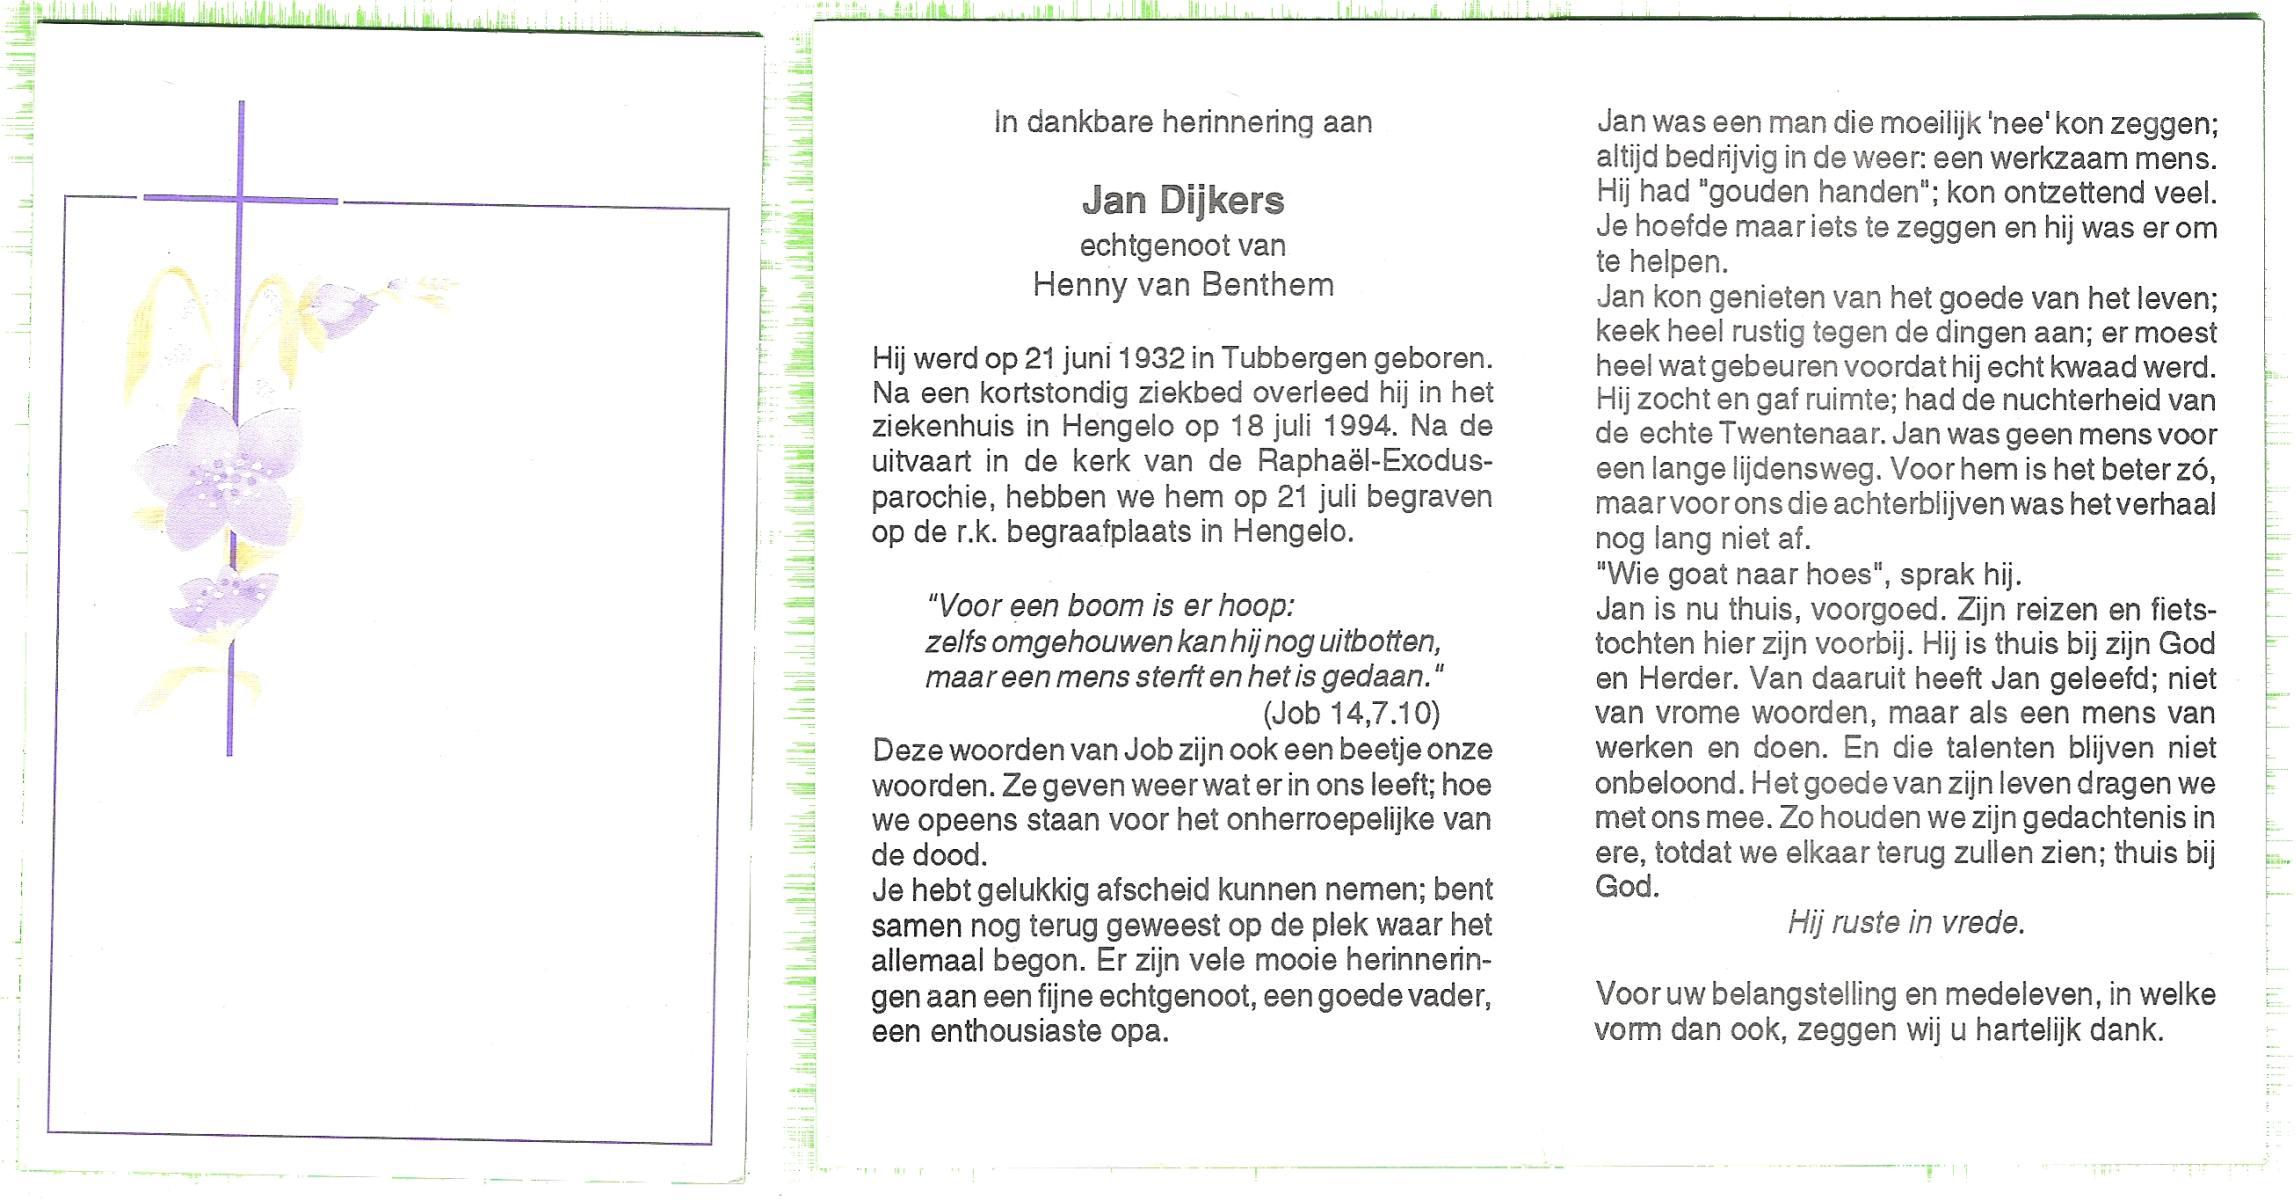 In dankbare herinnering aan
Jan Dijkers
echtgenoot van
Henny van Benthem
Hij werd op 21 juni 1932 in Tubbergen geboren.
Na een kortstondig ziekbed overleed hij in het
ziekenhuis in Hengelo op 18 juli 1994. Na de
uitvaart in de kerk van de Raphaël-Exodus-
parochie, hebben we hem op 21 juli begraven
op de r.k. begraafplaats in Hengelo.
"Voor een boom is er hoop:
zelfs omgehouwen kan hij nog uitbotten,
maar een mens sterft en het is gedaan."
(Job 14,7.10)
Deze woorden van Job zijn ook een beetje onze
woorden. Ze geven weer wat er in ons leeft; hoe
we opeens staan voor het onherroepelijke van
de dood.
Je hebt gelukkig afscheid kunnen nemen; bent
samen nog terug geweest op de plek waar het
allemaal begon. Er zijn vele mooie herinnerin-
gen aan een fijne echtgenoot, een goede vader,
een enthousiaste opa.
Jan was een man die moeilijk 'nee' kon zeggen;
altijd bedrijvig in de weer: een werkzaam mens.
Hij had "gouden handen"; kon ontzettend veel.
Je hoefde maar iets te zeggen en hij was er om
te helpen.
Jan kon genieten van het goede van het leven;
keek heel rustig tegen de dingen aan; er moest
heel wat gebeuren voordat hij echt kwaad werd.
Hij zocht en gaf ruimte; had de nuchterheid van
de echte Twentenaar. Jan was geen mens voor
een lange lijdensweg. Voor hem is het beter zó,
maar voor ons die achterblijven was het verhaal
nog lang niet af.
"Wie goat naar hoes", sprak hij.
Jan is nu thuis, voorgoed. Zijn reizen en fiets-
tochten hier zijn voorbij. Hij is thuis bij zijn God
en Herder. Van daaruit heeft Jan geleefd; niet
van vrome woorden, maar als een mens van
werken en doen. En die talenten blijven niet
onbeloond. Het goede van zijn leven dragen we
met ons mee. Zo houden we zijn gedachtenis in
ere, totdat we elkaar terug zullen zien; thuis bij
God.
Hij ruste in vrede.
Voor uw belangstelling en medeleven, in welke
vorm dan ook, zeggen wij u hartelijk dank.